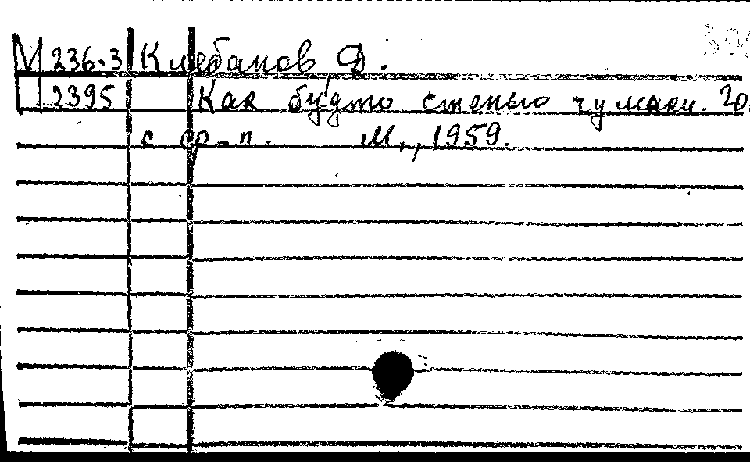 М 236-3 Клебанов Д.
2395 Как будто степью чумаки. Го
с ср-п. М., 1959.